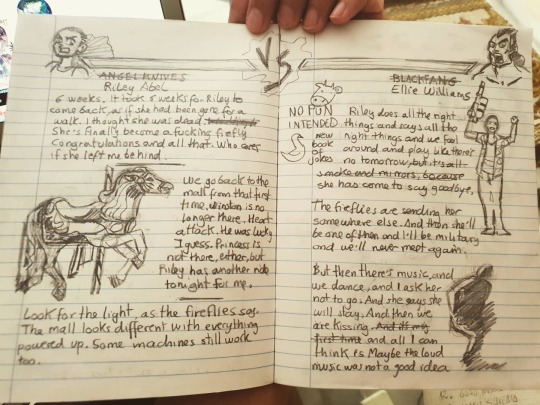 VS
ANGEL KNIVES
Riley Abel
6 weeks. It took 6 weeks for Riley to
come back, as if she had been gone for a
walk. I thought she was dead.
She's finally become a fucking firefly
Congratulations and all that. Who cares
if she left me behind.
We go back to the
mall from that first
time. Winston is no
longer there. Heart
attack. He was lucky
I guess. Princess is
not there, either, but
Riley has another ride
tonight for me.
Look for the light, as the fireflies say.
The mall looks different with everything
powered up. Some machines still work
too.
BLACKFANG
Ellie Williams
NO PUN
INTENDED
new
book
of
jokes
Riley does all the right
things and says all the
right things and we fool
around and play like there's
no tomorrow, but it's all
smoke and mirrors, because
she has come to say goodbye.
The fireflies are sending her
somewhere else. And then she'll
be one of them and I'll be military
and we'll never meet again.
But then there's music, and
we dance, and I ask her
not to go. And she says she
will stay. And then we
are kissing. And it's my
first time and all I can
think is Maybe the loud
music was not a good idea